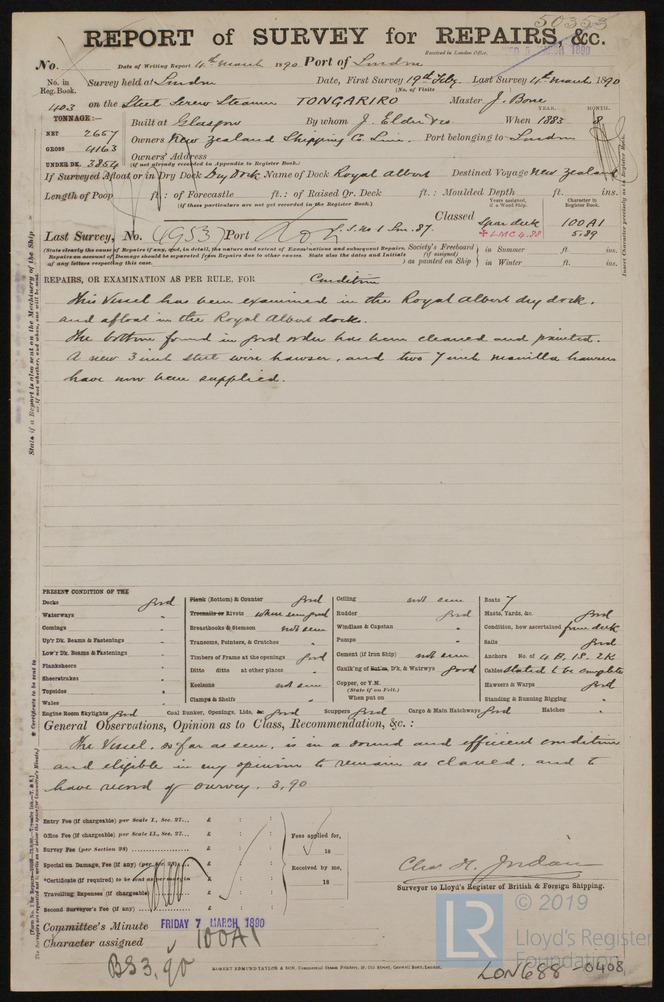 50353
REPORT of SURVEY for REPAIRS, &c.
Received in London Office,
No. Date of Writing Report 4th March 1890 Port of London
No. in Reg. Book. Survey held at London Date, First Survey 19th Feby. Last Survey 4th March 1890
(No. of Visits
403 on the Steel Screw Steamer TONGARIRO Master J. Bone
TONNAGE:— YEAR. MONTH.
Built at Glasgow By whom J. Elder & Co When 1883 8
NET 2667
GROSS 4163 Owners New Zealand Shipping Co. Lim. Port belonging to London
Owners' Address
UNDER DK. 3854 (if not already recorded in Appendix to Register Book.)
If Surveyed Afloat or in Dry Dock Dry Dock Name of Dock Royal Albert Destined Voyage New Zealand
Length of Poop ft.: of Forecastle ft.: of Raised Qr. Deck ft.: Moulded Depth ft. ins.
(If these particulars are not yet recorded in the Register Book.)
Years assigned, if a Wood Ship. Character in Register Book.
Classed Spar deck 100A1
LMC 4.88 5.89
Last Survey, No. 4953 Port Lon S.S. No 1 Lon. 87
(State clearly the cause of Repairs if any, and, in detail, the nature and extent of Examinations and subsequent Repairs.
Repairs on account of Damage should be separated from Repairs due to other causes. State also the dates and Initials
of any letters respecting this case.
Society's Freeboard (if assigned) as painted on Ship in Summer ft. ins.
in Winter ft. ins.
Insert Character precisely as in Register Book.
REPAIRS, OR EXAMINATION AS PER RULE, FOR Condition
This Vessel has been examined in the Royal Albert dry dock.
and afloat in the Royal Albert dock.
The bottom found in good order has been cleaned and painted.
A new 3 inch steel wire hawser, and two 7 inch manilla hawsers
have now been supplied.
State if a Report is also sent on the Machinery of the Ship
PRESENT CONDITION OF THE
Decks good
Waterways "
Comings "
Up'r Dk. Beams & Fastenings "
Low'r Dk. Beams & Fastenings "
Planksheers "
Sheerstrakes "
Topsides "
Wales "
Engine Room Skylights good
Plank (Bottom) & Counter good
Treenails or Rivets where seen good
Breasthooks & Stemson not seen
Transoms, Pointers, & Crutches "
Timbers of Frame at the openings good
Ditto ditto at other places "
Keelsons not seen
Clamps & Shelfs "
Coal Bunker, Openings, Lids, &c good
Ceiling not seen
Rudder good
Windlass & Capstan "
Pumps "
Cement (if Iron Ship) not seen
Caulk'g of Bottom, D'k, & Watrwys good
Copper, or Y.M. (State if on Felt.)
When put on
Scuppers good Cargo & Main Hatchways good Hatches "
Boats 7
Masts, Yards, &c. good
Condition, how ascertained from deck
Sails good
Anchors No. of 4 B. 1S. 2K
Cables stated to be complete
Hawsers & Warps good
Standing & Running Rigging "
General Observations, Opinion as to Class, Recommendation, &c.:
The Vessel, so far as seen, is in a sound and efficient condition
and eligible in my opinion to remain as classed, and to
have record of survey. 3,90
Certificate to be sent to
Entry Fee (if chargeable) per Scale I., Sec. 27... £ : :
Office Fee (if chargeable) per Scale II., Sec. 27... £ : :
Survey Fee (per Section 28) £ : :
Special on Damage, Fee (if any) (per Sec. 28) £ : :
*Certificate (if required) to be sent £ : :
Travelling Expenses (if chargeable) £ : :
Second Surveyor's Fee (if any) £ : :
Fees applied for,
18
Received by me,
18
Chas H. Jordan
Surveyor to Lloyd's Register of British & Foreign Shipping.
Committee's Minute FRIDAY 7 MARCH 1890
Character assigned 100A1
BS 3,90
ROBERT EDMUND TAYLOR & SON, Commercial Steam Printers, 19, Old Street, Goswell Road, London.
© 2019
LR Lloyd's Register Foundation
LON688-0408